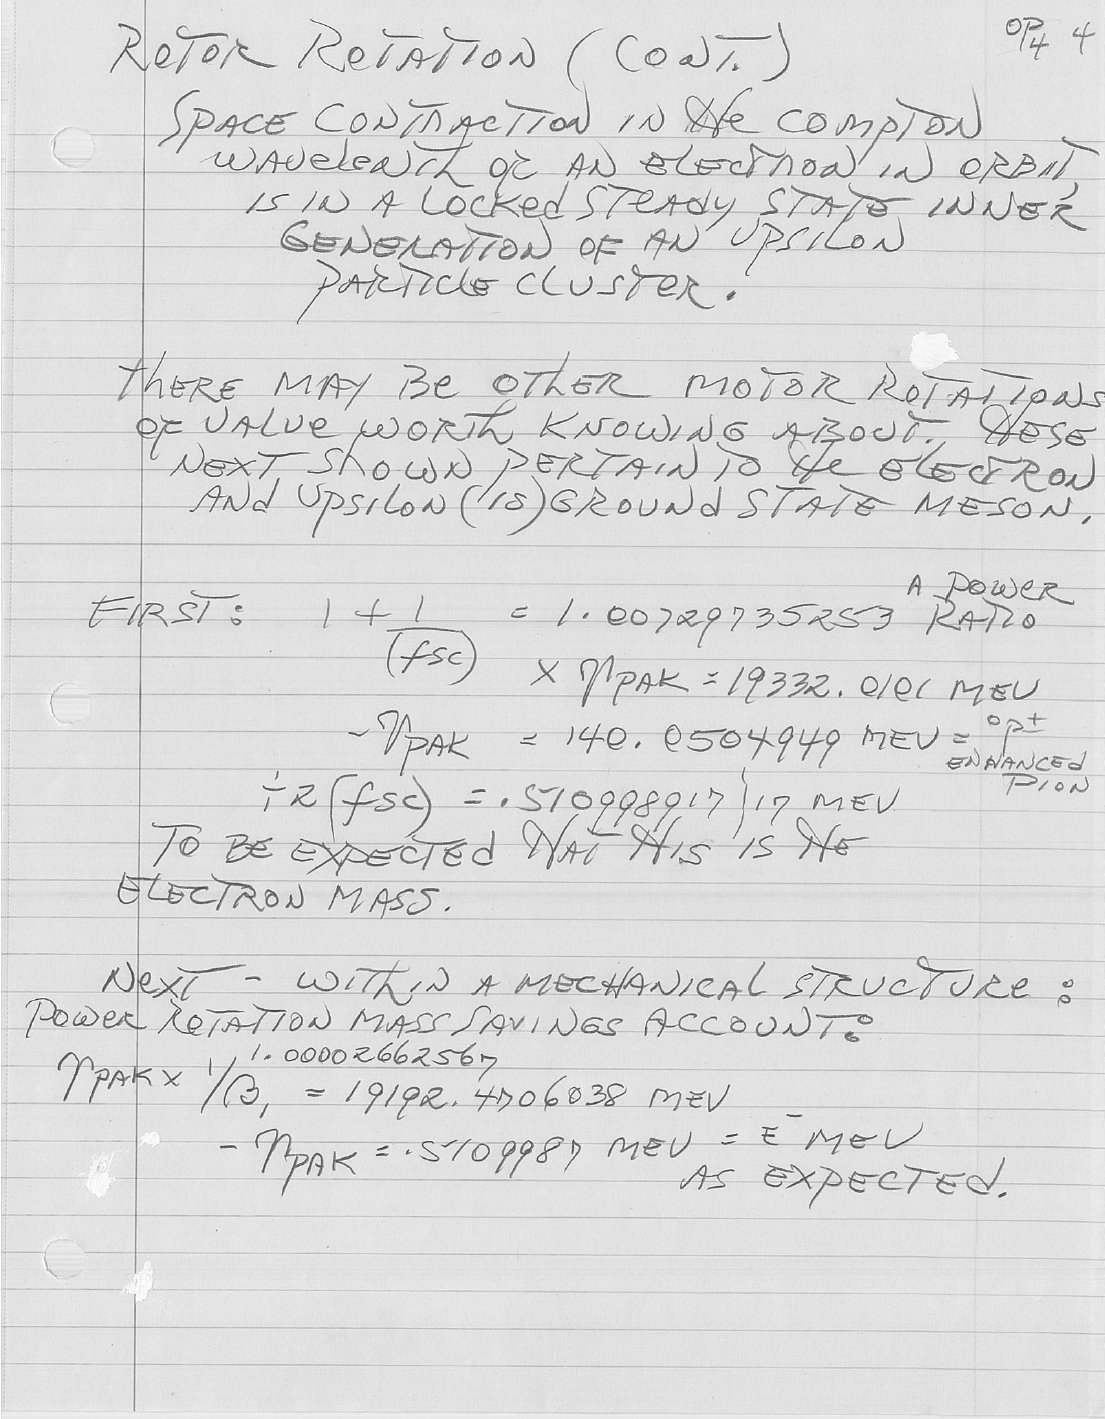 OP4 4
ROTOR ROTATION (CONT.)
SPACE CONTRACTION IN THE COMPTON
WAVELENTH OF AN ELECTRON IN ORBIT,
IS IN A LOCKED STEADY STATE INNER
GENERATION OF AN UPSILON
PARTICLE CLUSTER.
THERE MAY BE OTHER MOTOR ROTATIONS
OF VALUE WORTH KNOWING ABOUT. THESE
NEXT SHOWN PERTAIN TO THE ELECTRON
AND UPSILON (1S) GROUND STATE MESON.
FIRST: 1 + 1/(fsc) = 1.00729735253 A POWER RATIO
x ηPAK = 19332.0101 MEV
- ηPAK = 140.0504949 MEV = op± ENHANCED PION
÷ 2(fsc) = .510998917)17 MEV
TO BE EXPECTED THAT THIS IS THE
ELECTRON MASS.
NEXT - WITHIN A MECHANICAL STRUCTURE:
POWER ROTATION MASS SAVINGS ACCOUNT:
1.00002662567
ηPAK x 1/β, = 19192.4706038 MEV
- ηPAK = .5109987 MEV = E- MEV
AS EXPECTED.